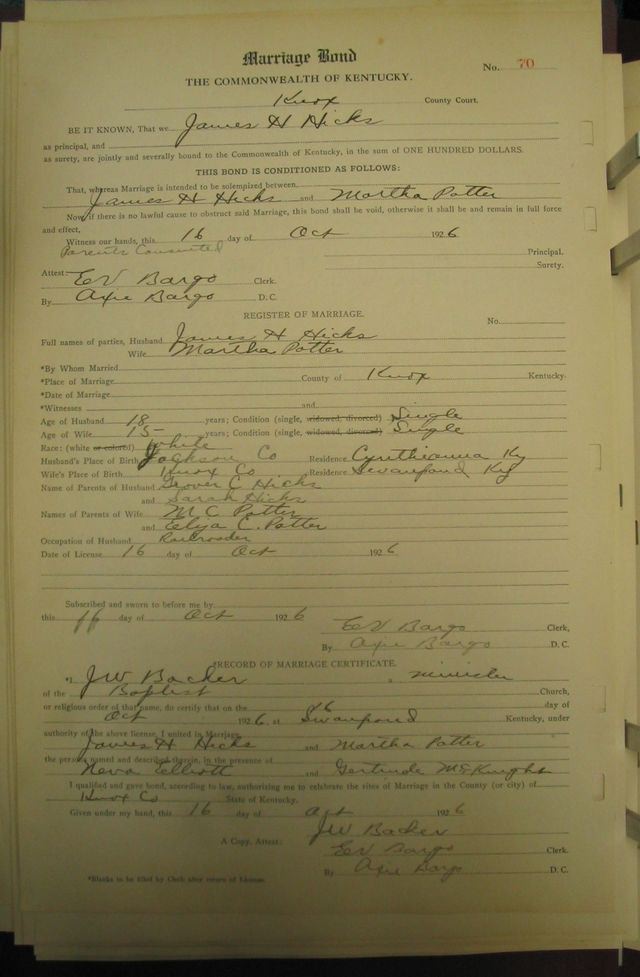 Marriage Bond
No. 70
THE COMMONWEALTH OF KENTUCKY.
Knox County Court.
BE IT KNOWN, That we James H Hicks
as principal, and
as surety, are jointly and severally bound to the Commonwealth of Kentucky, in the sum of ONE HUNDRED DOLLARS.
THIS BOND IS CONDITIONED AS FOLLOWS:
That, whereas Marriage is intended to be solemnized between
James H Hicks and Martha Potter
Now, if there is no lawful cause to obstruct said Marriage, this bond shall be void, otherwise it shall be and remain in full force
and effect,
Witness our hands, this 16 day of Oct 1926
Parents Consented Principal.
Surety.
Attest: EV Bargo Clerk.
By Axie Bargo D. C.
REGISTER OF MARRIAGE.
No.
Full names of parties, Husband James H Hicks
Wife Martha Potter
*By Whom Married
*Place of Marriage County of Knox Kentucky.
*Date of Marriage
*Witnesses and
Age of Husband 18 years; Condition (single, widowed, divorced) Single
Age of Wife 15 years; Condition (single, widowed, divorced) Single
Race: (white or colored) White
Husband's Place of Birth Jackson Co Residence Cynthianna Ky
Wife's Place of Birth Knox Co Residence Swanpond Ky
Name of Parents of Husband Grover C Hicks
and Sarah Hicks
Names of Parents of Wife M. C Potter
and E. Potter
Occupation of Husband Railroader
Date of License 16 day of Oct 1926
Subscribed and sworn to before me by
this 16 day of Oct 1926
EV Bargo Clerk,
By Axie Bargo D. C.
RECORD OF MARRIAGE CERTIFICATE.
*I JW Backer a minister
of the Baptist Church,
or religious order of that name, do certify that on the 16 day of
Oct 1926, at Swanpond Kentucky, under
authority of the above license, I united in Marriage
James H Hicks and Martha Potter
the persons named and described therein, in the presence of
Neva Elliott and Gertrude McKnight
I qualified and gave bond, according to law, authorizing me to celebrate the rites of Marriage in the County (or city) of
Knox Co State of Kentucky.
Given under my hand, this 16 day of Oct 1926
JW Backer
A Copy. Attest: EV Bargo Clerk.
By Axie Bargo D. C.
*Blanks to be filled by Clerk after return of License.